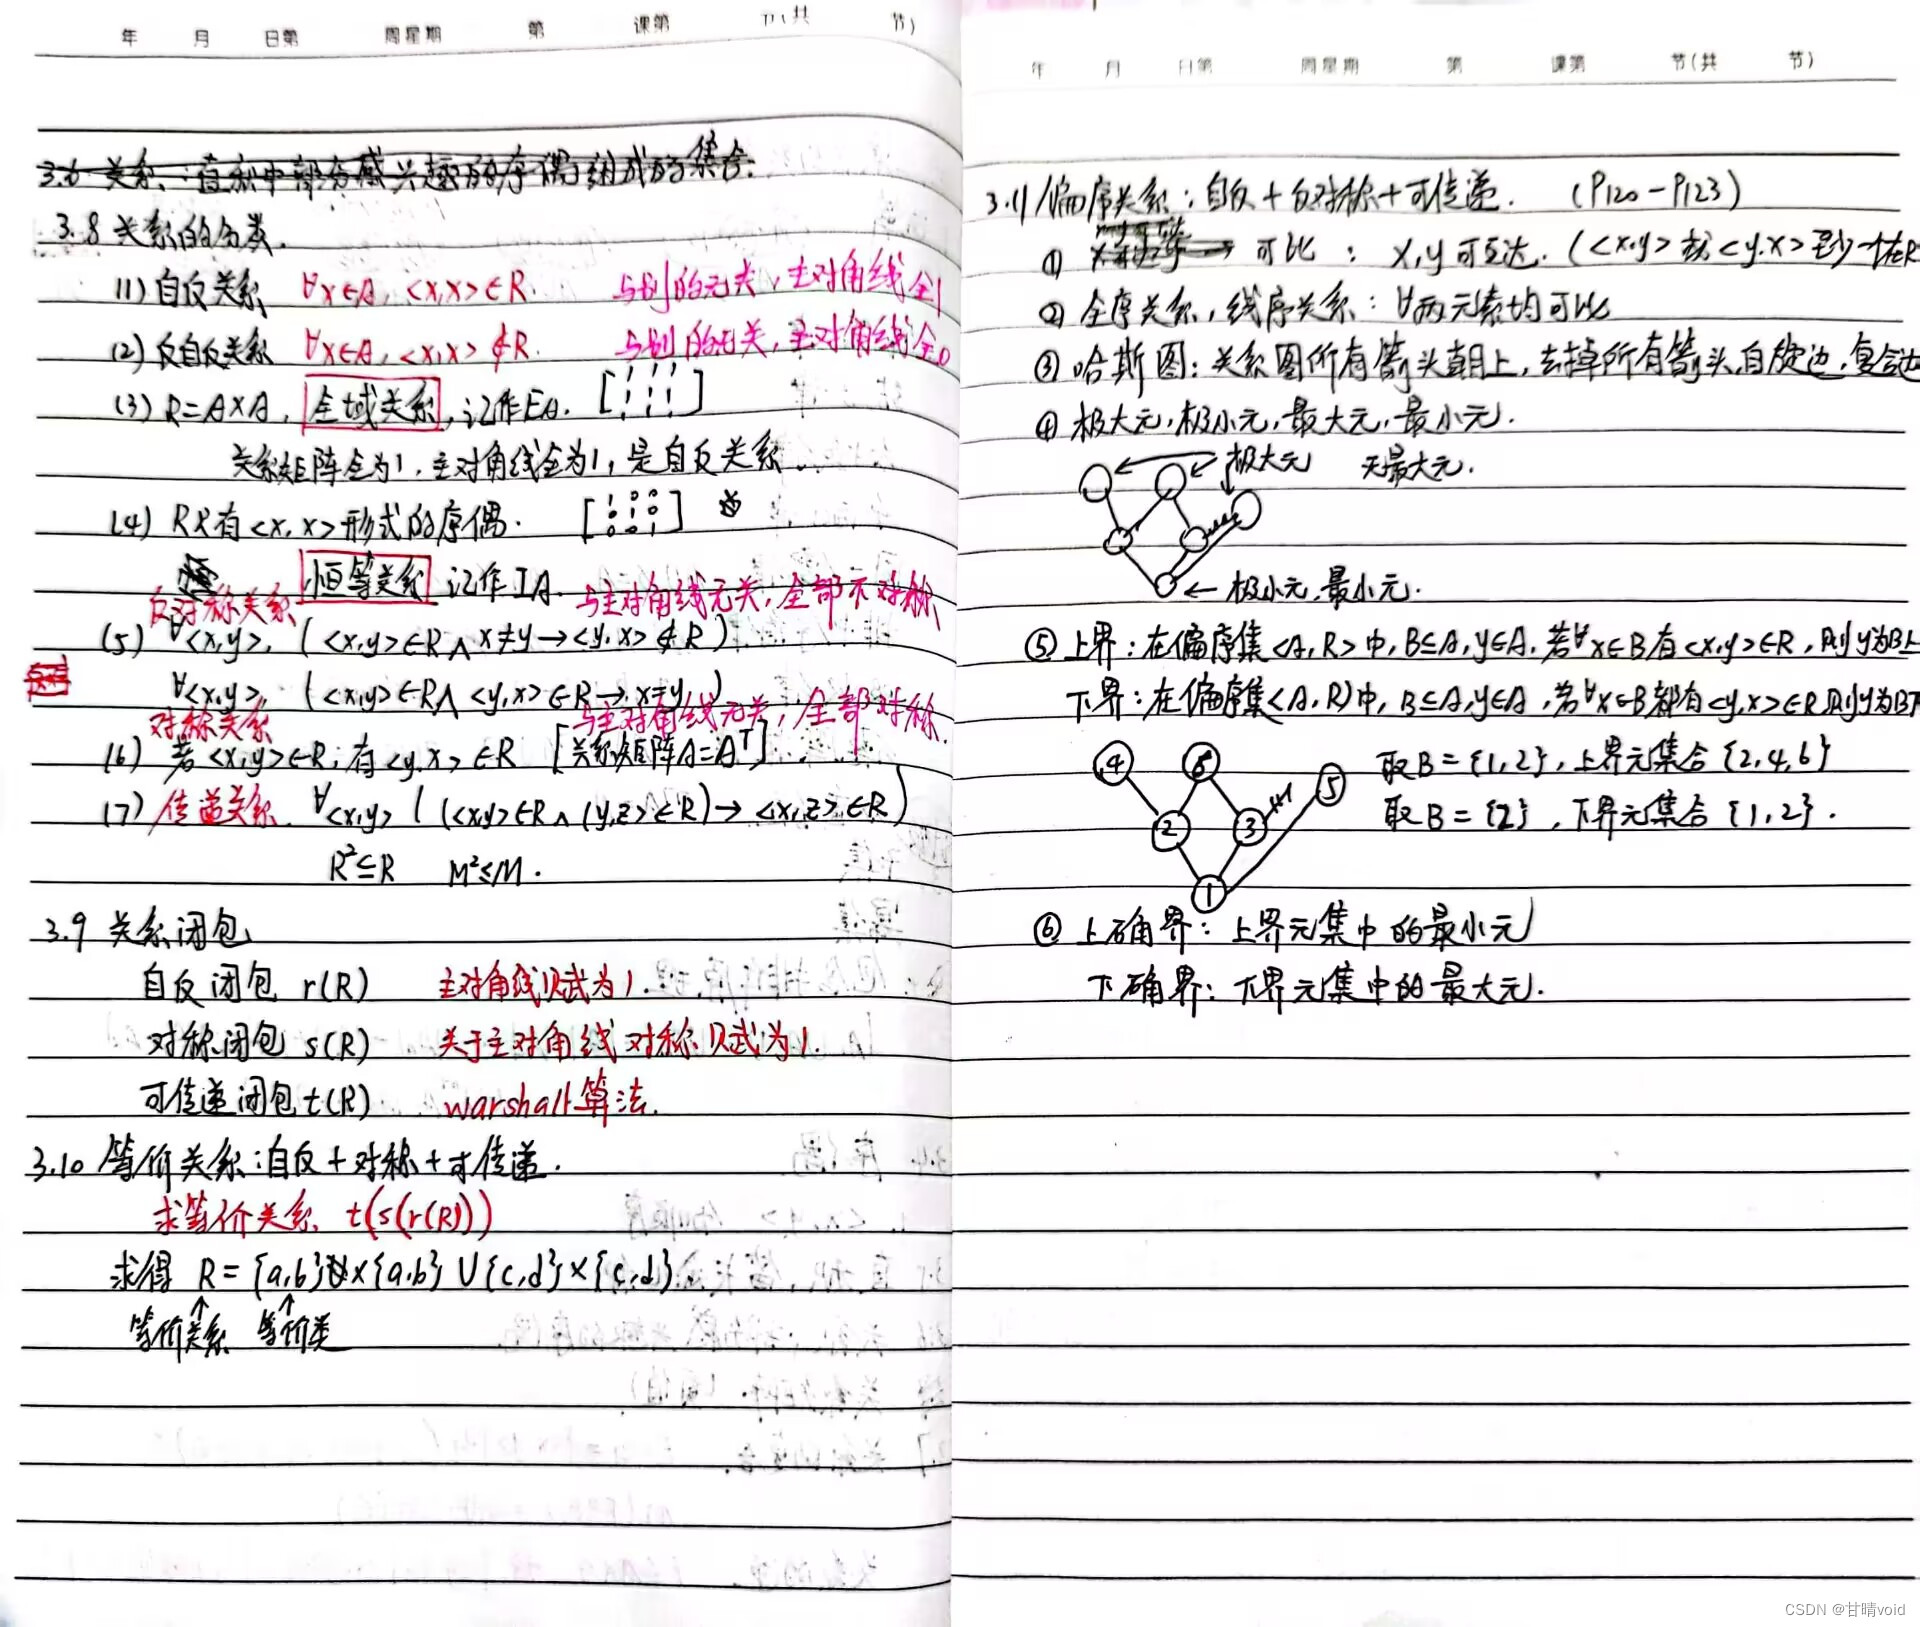 年 月 日第 周星期 第 课第 节(共 节)
3.6 关系：直积中部分感兴趣的序偶组成的集合.
3.8 关系的分类.
(1) 自反关系 ∀x∈A, <x,x>∈R. 与别的无关，主对角线全1
(2) 反自反关系 ∀x∈A, <x,x>∉R. 与别的无关，主对角线全0
(3) R=A×A, 全域关系, 记作EA. [1 1 1 1 1 1 1 1 1]
关系矩阵全为1. 主对角线全为1, 是自反关系.
(4) R只有<x,x>形式的序偶. [1 0 0 0 1 0 0 0 1]
恒等关系 记作IA.
反对称关系 与主对角线无关, 全部不对称
(5) ∀<x,y>, (<x,y>∈R∧x≠y→<y,x>∉R)
∀<x,y>, (<x,y>∈R∧<y,x>∈R→x=y)
对称关系 与主对角线无关, 全部对称.
(6) 若<x,y>∈R, 有<y,x>∈R [关系矩阵A=Aᵀ]
(7) 传递关系. ∀<x,y> ((<x,y>∈R∧(y,z>∈R)→<x,z>∈R)
R²⊆R M²≤M.
3.9 关系闭包
自反闭包 r(R) 主对角线赋为1.
对称闭包 s(R) 关于主对角线对称赋为1.
可传递闭包 t(R) warshall算法.
3.10 等价关系：自反+对称+可传递.
求等价关系 t(s(r(R)))
求得 R={a,b}×{a,b}∪{c,d}×{c,d}.
↑ ↑
等价关系 等价类
年 月 日第 周星期 第 课第 节(共 节)
3.11 偏序关系：自反+反对称+可传递. (P120-P123)
① 可比： x,y可互达. (<x,y>或<y,x>至少一个在R
② 全序关系, 线序关系：∀两元素均可比
③ 哈斯图：关系图所有箭头朝上, 去掉所有箭头,自旋边,复合边
④ 极大元, 极小元, 最大元, 最小元.
极大元 无最大元.
← 极小元, 最小元.
⑤ 上界：在偏序集<A,R>中, B⊆A, y∈A. 若∀x∈B有<x,y>∈R, 则y为B上
下界：在偏序集<A,R)中, B⊆A, y∈A, 若∀x∈B都有<y,x>∈R则y为B下
4 6 5
2 3
1
取B={1,2}, 上界元集合{2,4,6}
取B={2}, 下界元集合{1,2}.
⑥ 上确界：上界元集中的最小元
下确界：下界元集中的最大元.
CSDN @甘晴void